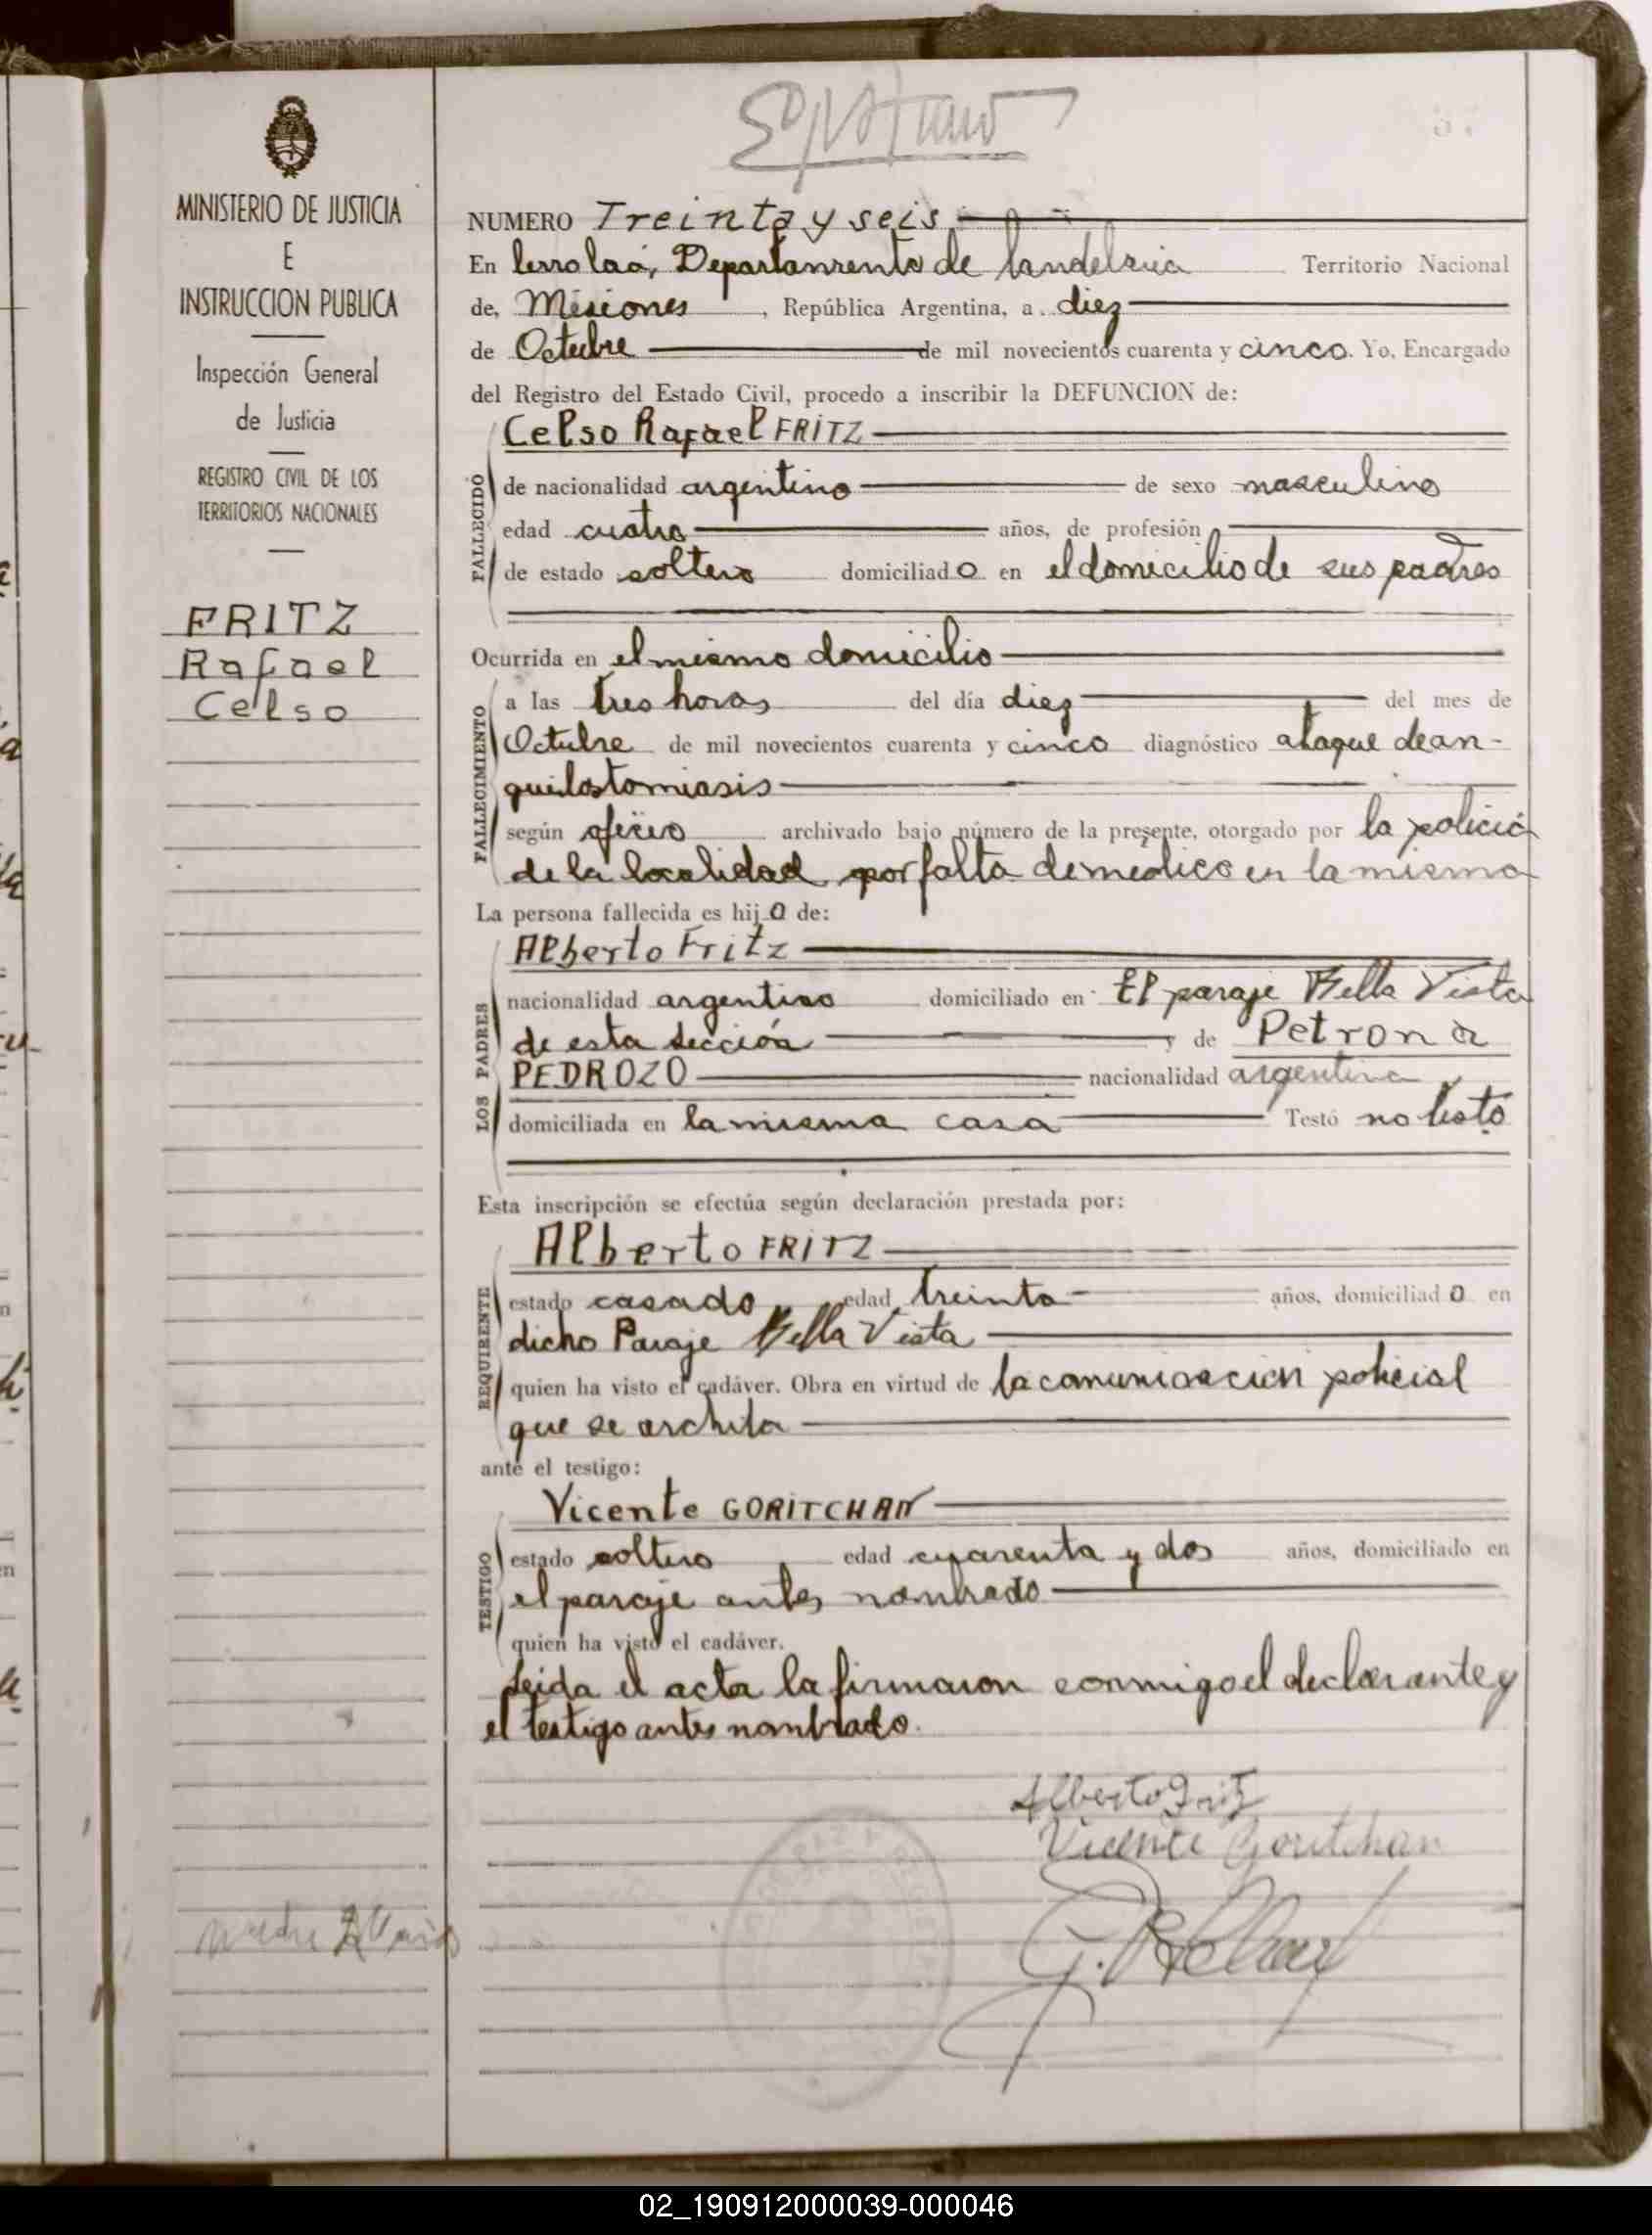 MINISTERIO DE JUSTICIA
E
INSTRUCCION PUBLICA
Inspección General
de Justicia
REGISTRO CIVIL DE LOS
TERRITORIOS NACIONALES
FRITZ
Rafael
Celso
NUMERO Treinta y seis
En Cerro Corá, Departamento de Candelaria Territorio Nacional
de, Misiones, República Argentina, a diez
de Octubre de mil novecientos cuarenta y cinco. Yo, Encargado
del Registro del Estado Civil, procedo a inscribir la DEFUNCION de:
Celso Rafael FRITZ
FALLECIDO
de nacionalidad argentino de sexo masculino
edad cuatro años, de profesión
de estado soltero domiciliado en el domicilio de sus padres
Ocurrida en el mismo domicilio
FALLECIMIENTO
a las tres horas del día diez del mes de
Octubre de mil novecientos cuarenta y cinco diagnóstico ataque de an-
quilostomiasis
según oficio archivado bajo número de la presente, otorgado por la policia
de la localidad por falta de medico en la misma
La persona fallecida es hijo de:
LOS PADRES
Alberto Fritz
nacionalidad argentino domiciliado en El paraje Bella Vista
de esta sección y de Petrona
PEDROZO nacionalidad argentina
domiciliada en la misma casa Testó no testó
Esta inscripción se efectúa según declaración prestada por:
REQUIRENTE
Alberto FRITZ
estado casado edad treinta años, domiciliado en
dicho Paraje Bella Vista
quien ha visto el cadáver. Obra en virtud de la comunicacion policial
que se archiva
ante el testigo:
TESTIGO
Vicente GORITCHAN
estado soltero edad cuarenta y dos años, domiciliado en
el paraje antes nombrado
quien ha visto el cadáver.
Leida el acta la firmaron conmigo el declarante y
el testigo antes nombrado.
Alberto Fritz
Vicente Goritchan
02_190912000039-000046